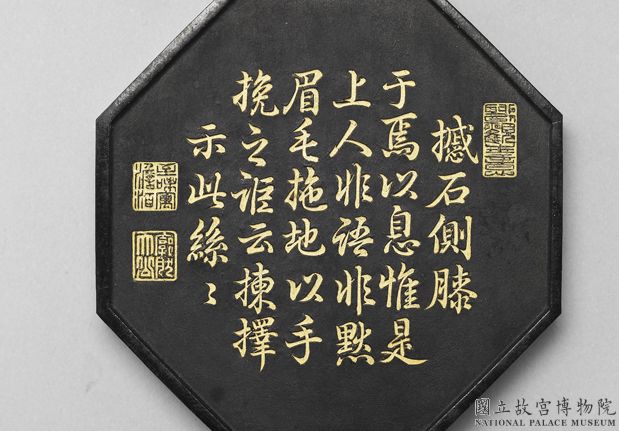 撼石側膝
于焉以息惟是
上人非語非黙
眉毛拖地以手
挽之誰云揀擇
示此絲〻
國立故宮博物院
NATIONAL PALACE MUSEUM